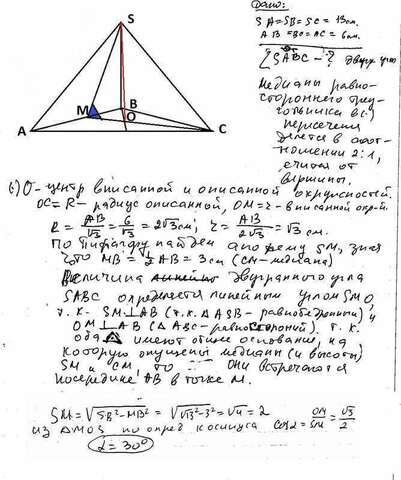 Дано:
SA=SB=SC = 13см.
AB=BC=AC = 6см.
∠SABC - ? двугр. угол
S
M
B
O
A
C
Медианы равно-
стороннего треу-
гольника в (.)
пересечения
делятся в соот-
ношении 2:1,
считая от
вершины.
O - центр вписанной и описанной окружностей.
OC = R - радиус описанной, OM = r - вписанной окр.
R = AB/√3 = 6/√3 = 2√3 см; r = AB/2√3 = √3 см.
По Пифагору найдем апофему SM, зная
что MB = 1/2 AB = 3см (CM - медиана)
Величина двугранного угла
SABC определяется линейным углом SMO,
т.к. SM⊥AB (т.к. △ASB - равнобедренный) и
OM⊥AB (△ABC - равносторонний). т.к.
оба △ имеют общее основание, на
которую опущены медианы (и высоты)
SM и CM, то они встречаются
посередине AB в точке M.
SM = √SB²-MB² = √√13²-3² = √4 = 2
из △MOS по опред косинуса cos α = OM/SM = √3/2
α = 30°